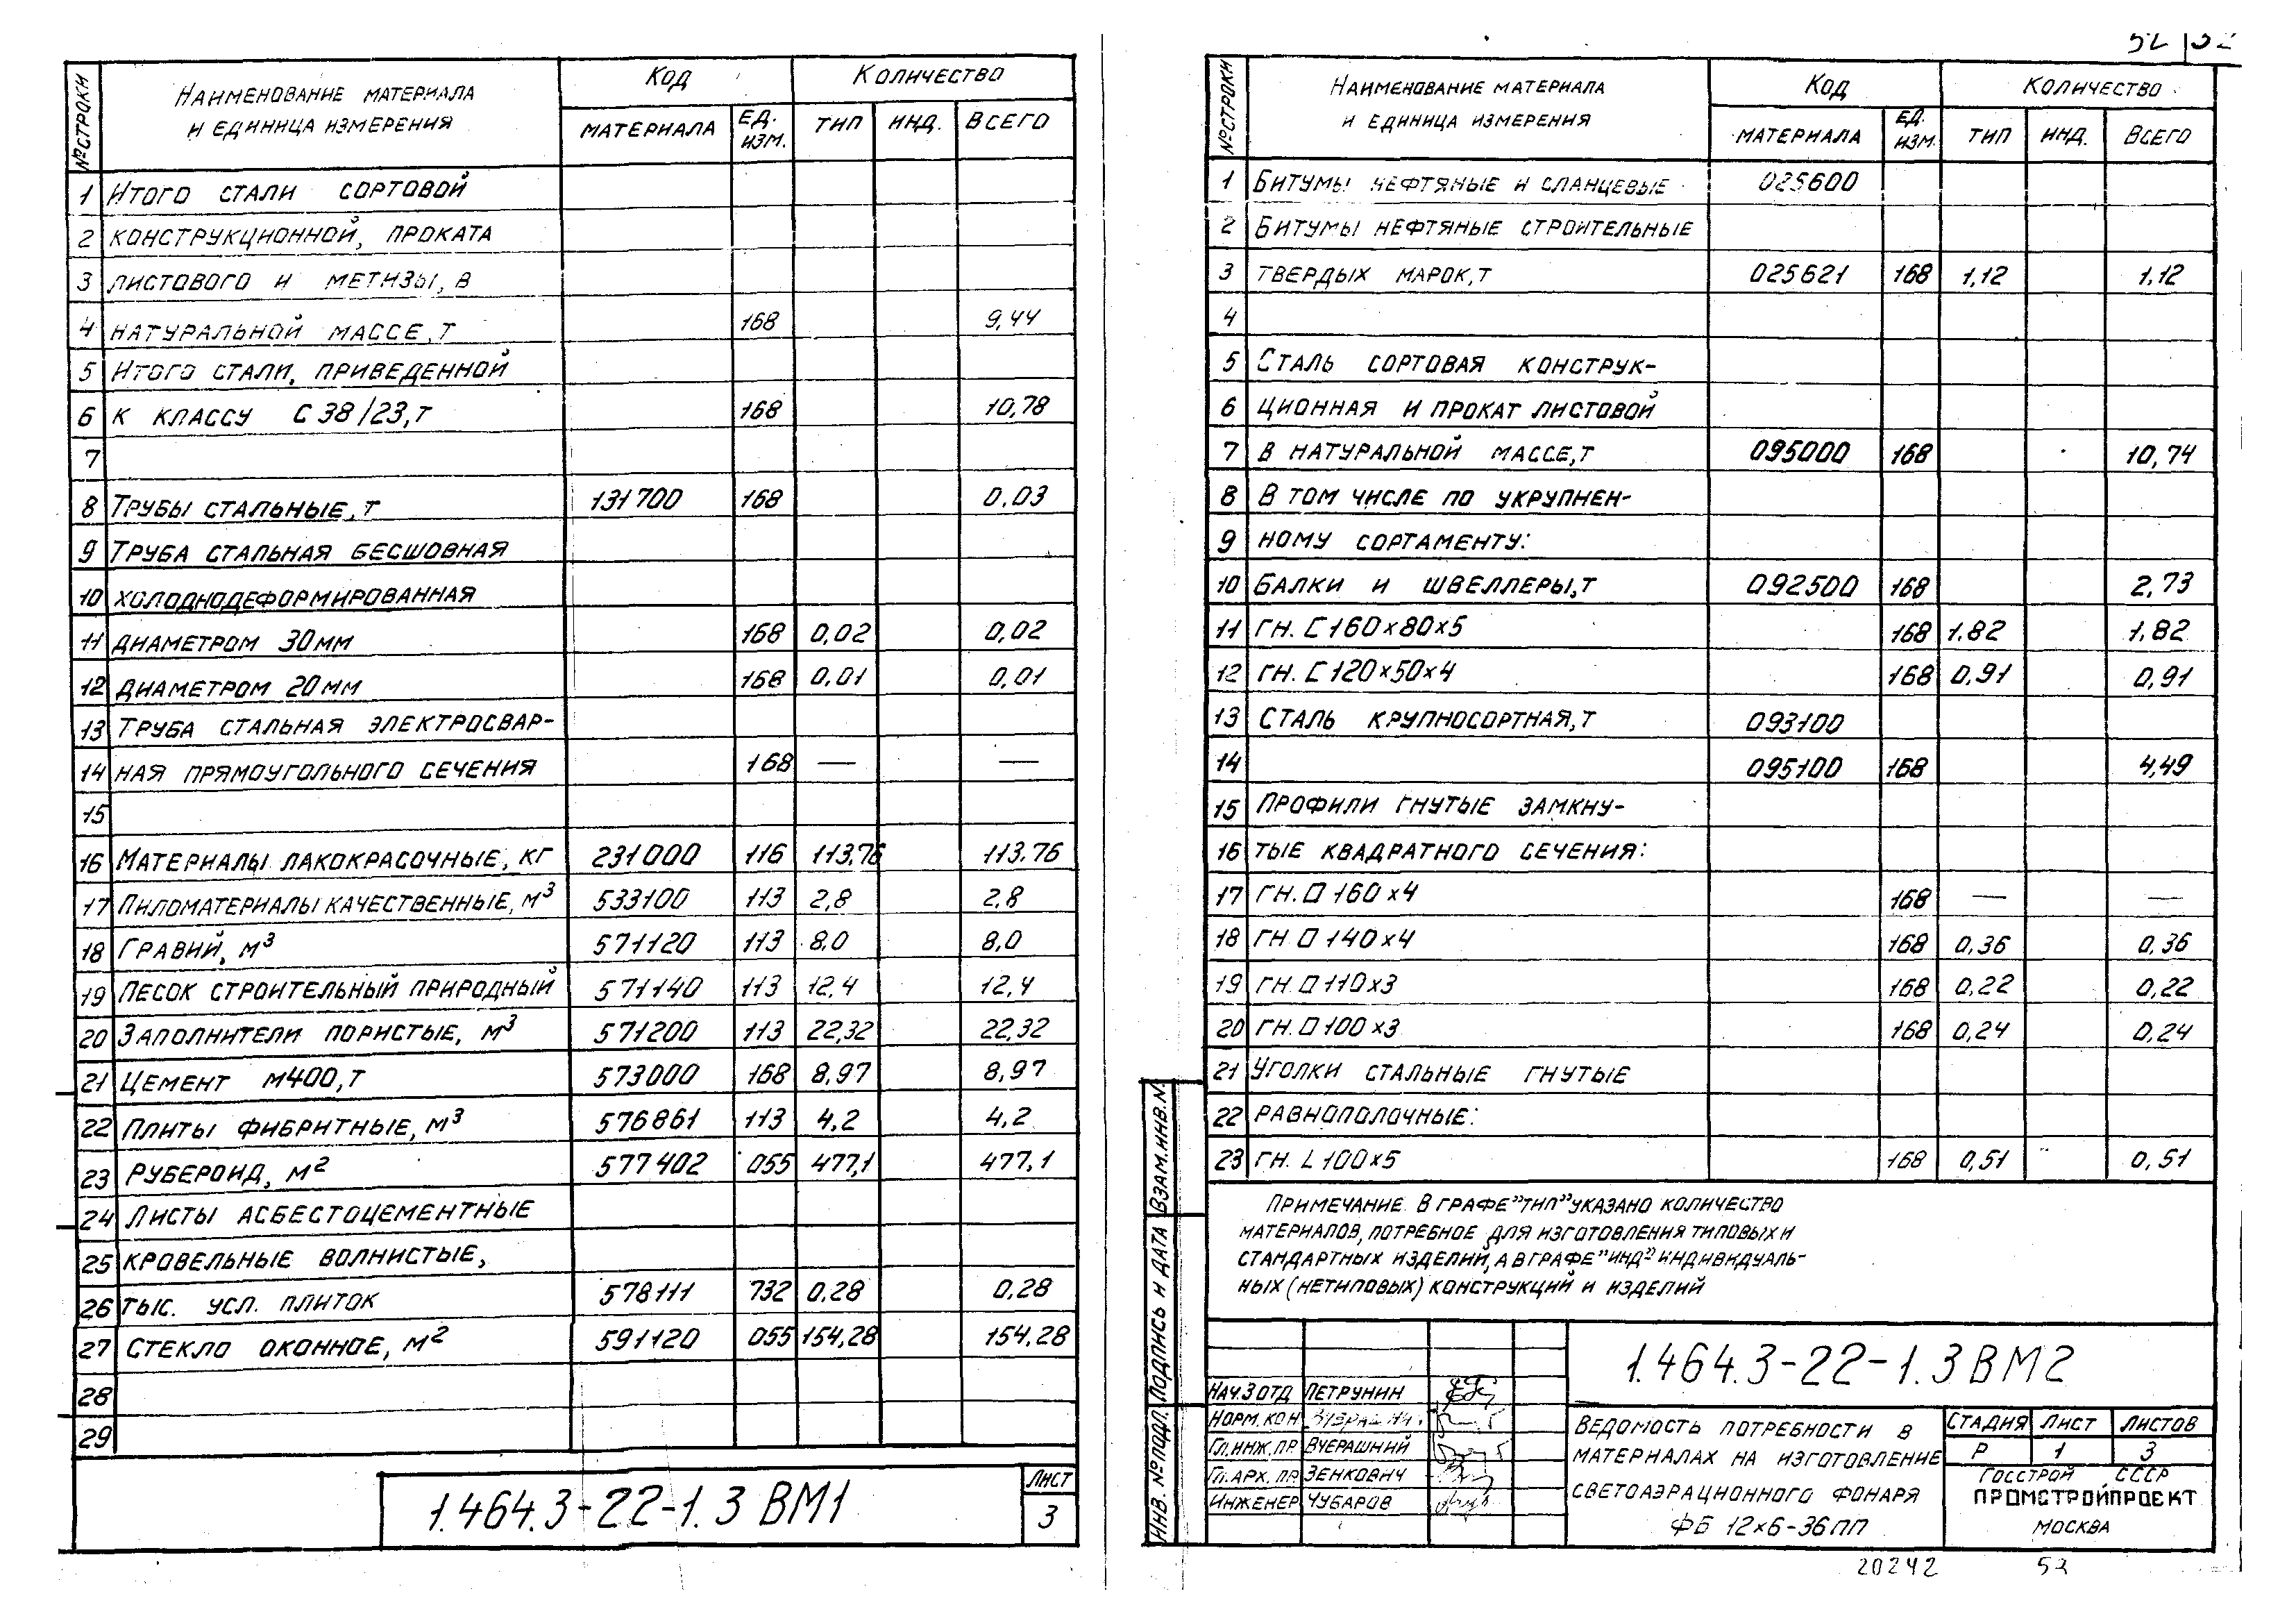 № СТРОКИ НАИМЕНОВАНИЕ МАТЕРИАЛА И ЕДИНИЦА ИЗМЕРЕНИЯ КОД КОЛИЧЕСТВО
МАТЕРИАЛА ЕД. ИЗМ. ТИП ИНД. ВСЕГО
1 ИТОГО СТАЛИ СОРТОВОЙ
2 КОНСТРУКЦИОННОЙ, ПРОКАТА
3 ЛИСТОВОГО И МЕТИЗЫ, В
4 НАТУРАЛЬНОЙ МАССЕ, Т 168 — 9,44
5 ИТОГО СТАЛИ, ПРИВЕДЕННОЙ
6 К КЛАССУ С 38/23, Т 168 10,78
7
8 ТРУБЫ СТАЛЬНЫЕ, Т 131700 168 0,03
9 ТРУБА СТАЛЬНАЯ БЕСШОВНАЯ
10 ХОЛОДНОДЕФОРМИРОВАННАЯ
11 ДИАМЕТРОМ 30 ММ 168 0,02 0,02
12 ДИАМЕТРОМ 20 ММ 168 0,01 0,01
13 ТРУБА СТАЛЬНАЯ ЭЛЕКТРОСВАР-
14 НАЯ ПРЯМОУГОЛЬНОГО СЕЧЕНИЯ 168 — —
15
16 МАТЕРИАЛЫ ЛАКОКРАСОЧНЫЕ, КГ 231000 116 113,76 113,76
17 ПИЛОМАТЕРИАЛЫ КАЧЕСТВЕННЫЕ, М³ 533100 113 2,8 2,8
18 ГРАВИЙ, М³ 571120 113 8,0 8,0
19 ПЕСОК СТРОИТЕЛЬНЫЙ ПРИРОДНЫЙ 571140 113 12,4 12,4
20 ЗАПОЛНИТЕЛИ ПОРИСТЫЕ, М³ 571200 113 22,32 22,32
21 ЦЕМЕНТ М400, Т 573000 168 8,97 8,97
22 ПЛИТЫ ФИБРИТНЫЕ, М³ 576861 113 4,2 4,2
23 РУБЕРОИД, М² 577402 055 477,1 477,1
24 ЛИСТЫ АСБЕСТОЦЕМЕНТНЫЕ
25 КРОВЕЛЬНЫЕ ВОЛНИСТЫЕ,
26 ТЫС. УСЛ. ПЛИТОК 578111 732 0,28 0,28
27 СТЕКЛО ОКОННОЕ, М² 591120 055 154,28 154,28
28
29
1.464.3-22-1.3 ВМ1
ЛИСТ
3
№ СТРОКИ НАИМЕНОВАНИЕ МАТЕРИАЛА И ЕДИНИЦА ИЗМЕРЕНИЯ КОД КОЛИЧЕСТВО
МАТЕРИАЛА ЕД. ИЗМ. ТИП ИНД. ВСЕГО
1 БИТУМЫ НЕФТЯНЫЕ И СЛАНЦЕВЫЕ 025600
2 БИТУМЫ НЕФТЯНЫЕ СТРОИТЕЛЬНЫЕ
3 ТВЕРДЫХ МАРОК, Т 025621 168 1,12 1,12
4
5 СТАЛЬ СОРТОВАЯ КОНСТРУК-
6 ЦИОННАЯ И ПРОКАТ ЛИСТОВОЙ
7 В НАТУРАЛЬНОЙ МАССЕ, Т 095000 168 10,74
8 В ТОМ ЧИСЛЕ ПО УКРУПНЕН-
9 НОМУ СОРТАМЕНТУ:
10 БАЛКИ И ШВЕЛЛЕРЫ, Т 092500 168 2,73
11 ГН. [ 160×80×5 168 1,82 1,82
12 ГН. [ 120×50×4 168 0,91 0,91
13 СТАЛЬ КРУПНОСОРТНАЯ, Т 093100
14 095100 168 4,49
15 ПРОФИЛИ ГНУТЫЕ ЗАМКНУ-
16 ТЫЕ КВАДРАТНОГО СЕЧЕНИЯ:
17 ГН. □ 160×4 168 — —
18 ГН. □ 140×4 168 0,36 0,36
19 ГН. □ 110×3 168 0,22 0,22
20 ГН. □ 100×3 168 0,24 0,24
21 УГОЛКИ СТАЛЬНЫЕ ГНУТЫЕ
22 РАВНОПОЛОЧНЫЕ:
23 ГН. L 100×5 168 0,51 0,51
ПРИМЕЧАНИЕ. В ГРАФЕ "ТИП" УКАЗАНО КОЛИЧЕСТВО
МАТЕРИАЛОВ, ПОТРЕБНОЕ ДЛЯ ИЗГОТОВЛЕНИЯ ТИПОВЫХ И
СТАНДАРТНЫХ ИЗДЕЛИЙ, А В ГРАФЕ "ИНД" ИНДИВИДУАЛЬ-
НЫХ (НЕТИПОВЫХ) КОНСТРУКЦИЙ И ИЗДЕЛИЙ
ИНВ. № ПОДЛ. ПОДПИСЬ И ДАТА ВЗАМ. ИНВ. №
1.464.3-22-1.3 ВМ2
НАЧ. 3 ОТД ПЕТРУНИН
НОРМ. КОН.
ГЛ. ИНЖ. ПР ВЧЕРАШНИЙ
ГЛ. АРХ. ПР ЗЕНКОВИЧ
ИНЖЕНЕР ЧУБАРОВ
ВЕДОМОСТЬ ПОТРЕБНОСТИ В
МАТЕРИАЛАХ НА ИЗГОТОВЛЕНИЕ
СВЕТОАЭРАЦИОННОГО ФОНАРЯ
ФБ 12×6-36ПП
СТАДИЯ ЛИСТ ЛИСТОВ
Р 1 3
ГОССТРОЙ СССР
ПРОМСТРОЙПРОЕКТ
МОСКВА
20242